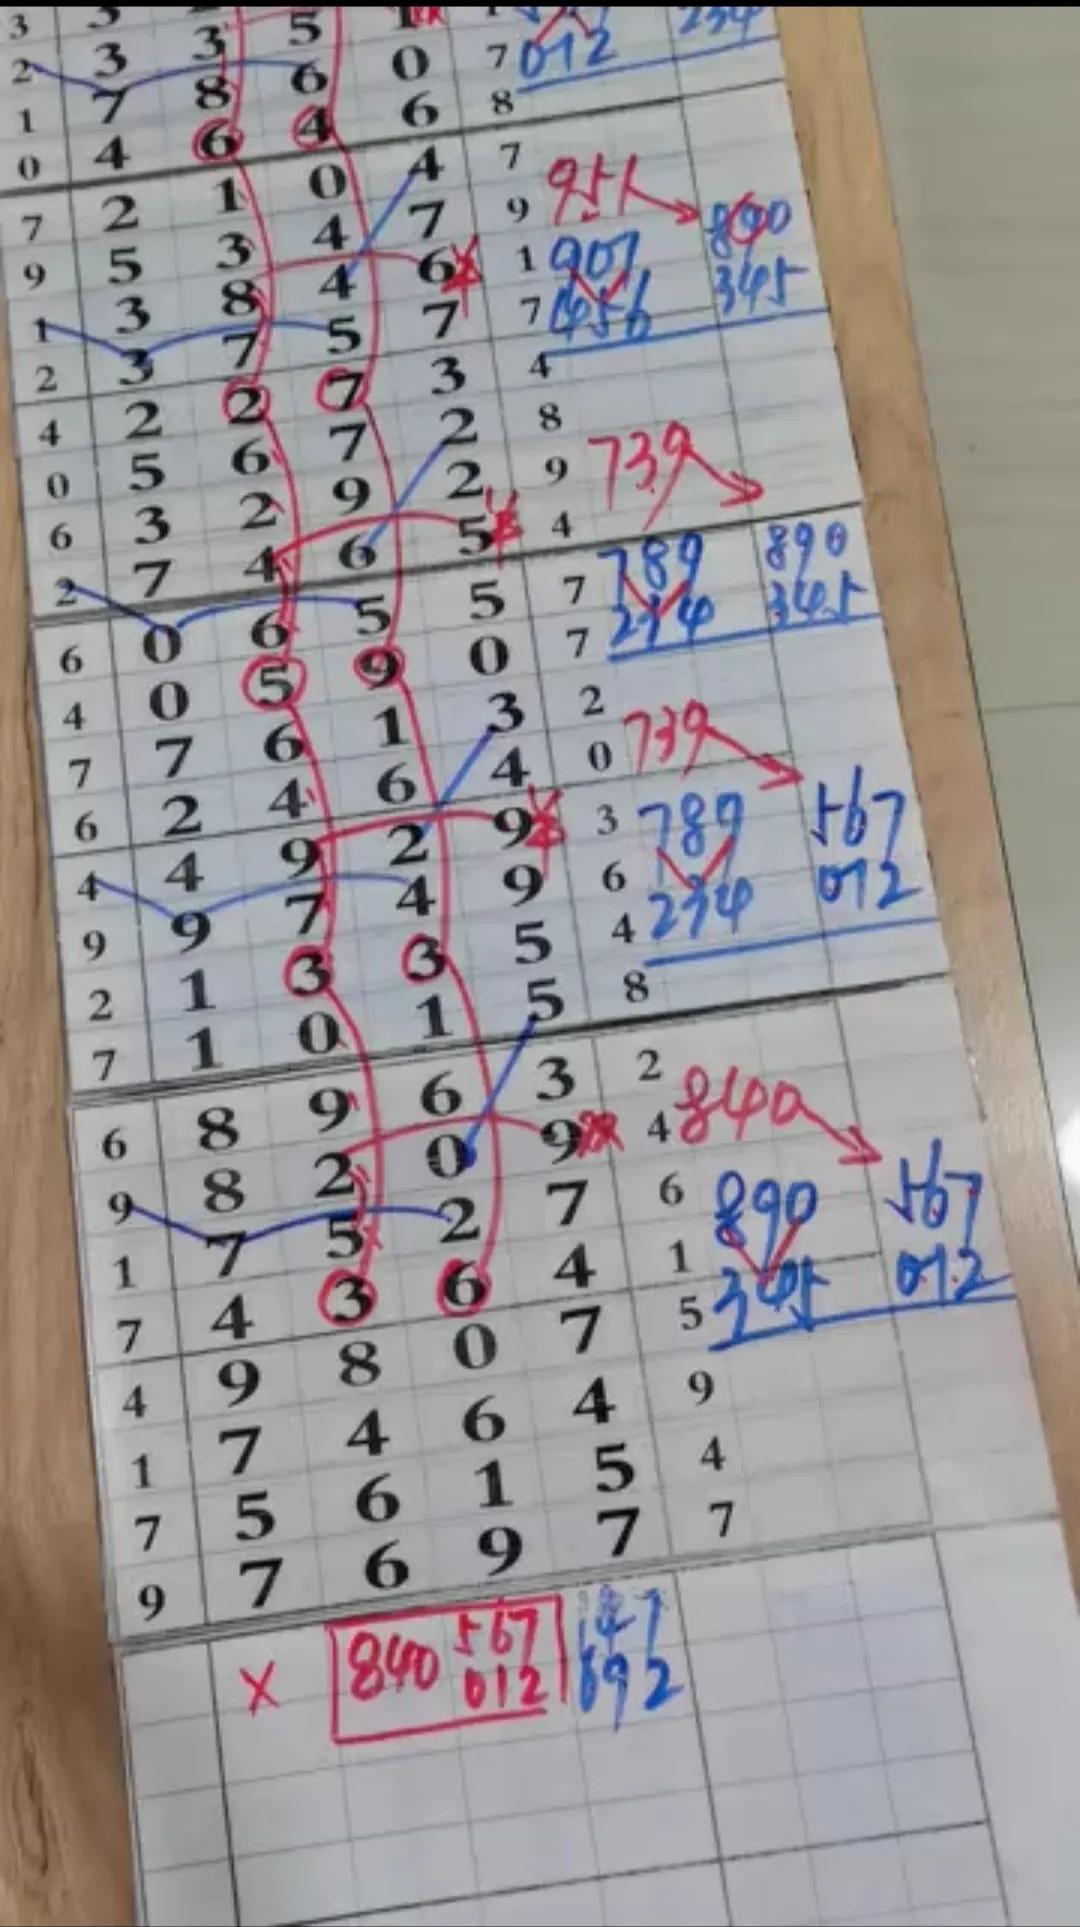 3 3
2 3 3 5 1
1 7 8 6 0 7 012 234
0 4 6 4 6 8
7 2 1 0 4 7
9 5 3 4 7 9 951 890
1 3 8 4 6 1 907 345
2 3 7 5 7 7 456
4 2 2 7 3 4
0 5 6 7 2 8
6 3 2 9 2 9 739
2 7 4 6 5 4
6 0 6 5 5 7 789 890
4 0 5 9 0 7 234 345
7 7 6 1 3 2
6 2 4 6 4 0 739
4 4 9 2 9 3 789 567
9 9 7 4 9 6 234 012
2 1 3 3 5 4
7 1 0 1 5 8
6 8 9 6 3 2
9 8 2 0 9 4 840
1 7 5 2 7 6 890 567
7 4 3 6 4 1 345 012
4 9 8 0 7 5
1 7 4 6 4 9
7 5 6 1 5 4
9 7 6 9 7 7
x 840 567 147
012 692